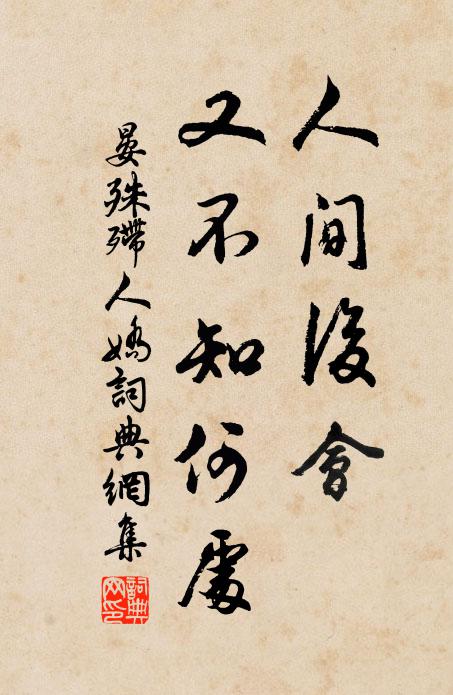 人間後會
又不知何處
晏殊殢人嬌詞典網集
詞典网印